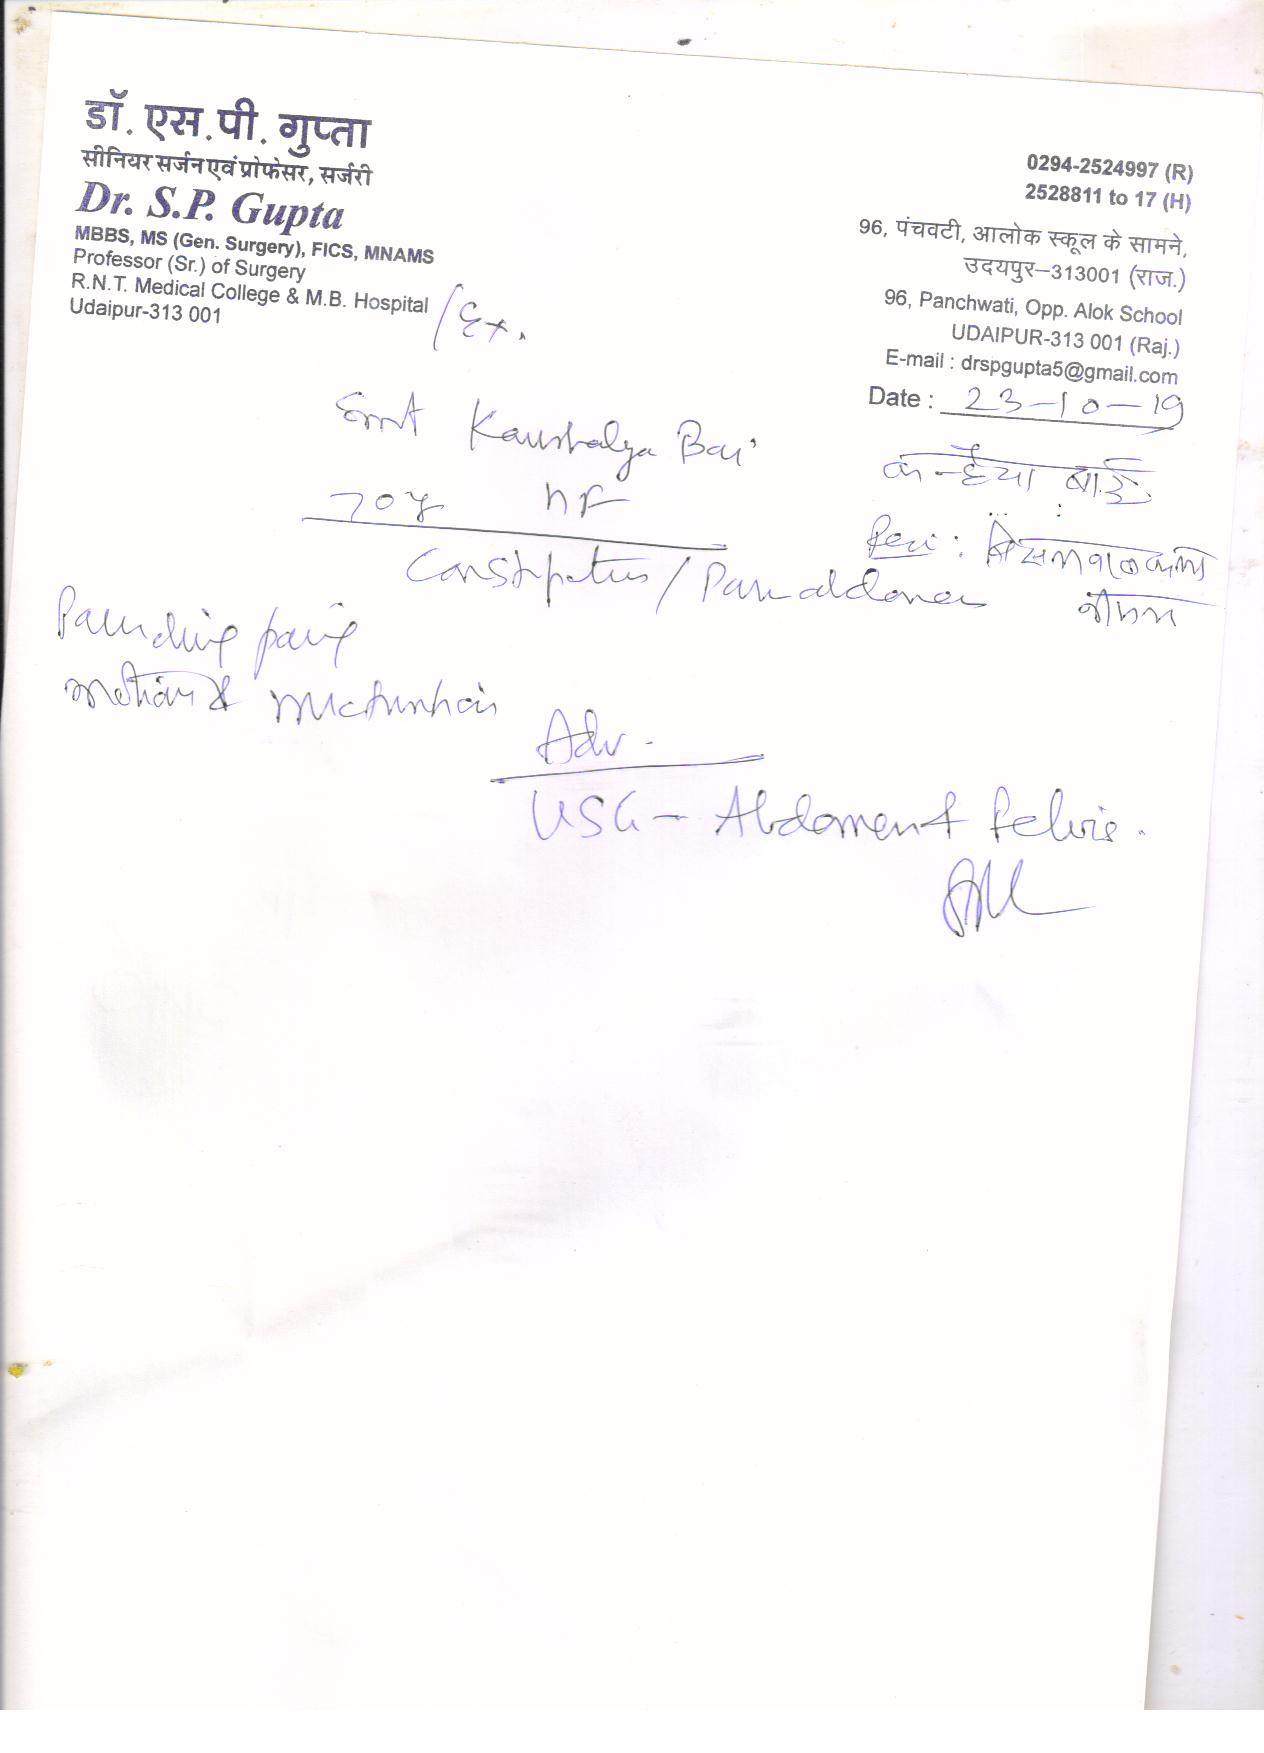 डॉ. एस.पी. गुप्ता
सीनियर सर्जन एवं प्रोफेसर, सर्जरी
Dr. S.P. Gupta
MBBS, MS (Gen. Surgery), FICS, MNAMS
Professor (Sr.) of Surgery
R.N.T. Medical College & M.B. Hospital
Udaipur-313 001
/Ex.
0294-2524997 (R)
2528811 to 17 (H)
96, पंचवटी, आलोक स्कूल के सामने,
उदयपुर–313001 (राज.)
96, Panchwati, Opp. Alok School
UDAIPUR-313 001 (Raj.)
E-mail : drspgupta5@gmail.com
Date : 23-10-19
Smt Kaushalya Bai
कन्हैया बाई
70y
Constipation / Pain abdomen
pain
Motion & Micturition
Adv.
USG - Abdomen & Pelvis.